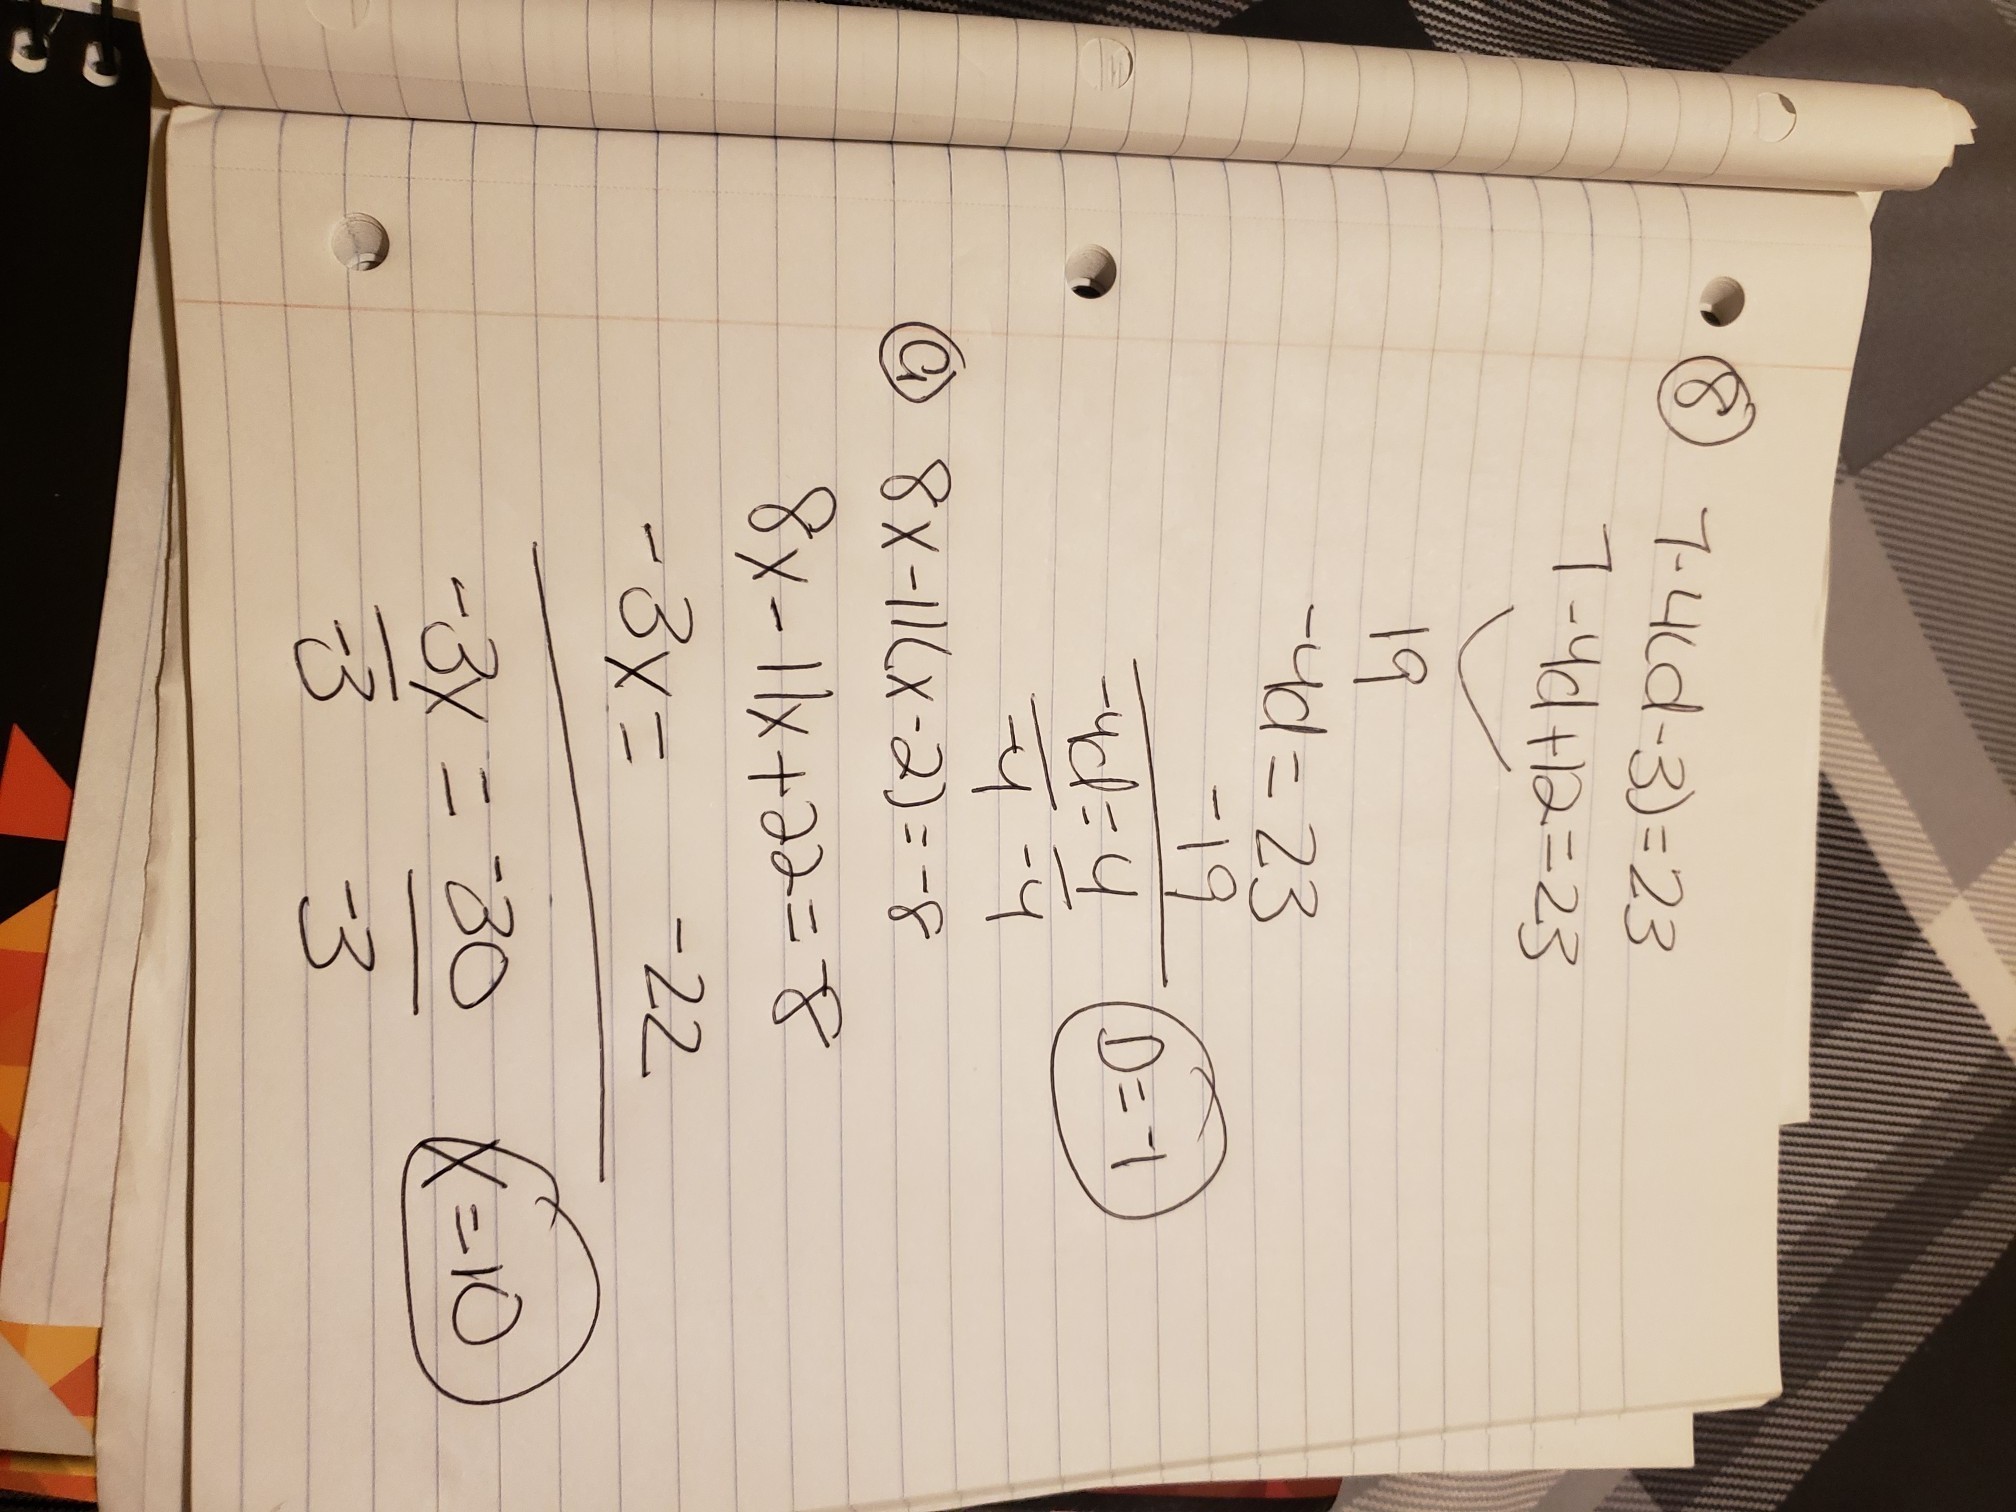 ⑧ 7-4(d-3)=23
7-4d+12=23
19
-4d=23
-19
-4d=4
-4 -4
D=-1
⑨ 8x-11(x-2)=-8
8x-11x+22=-8
-3x= -22
-3x=-30
-3 -3
x=10